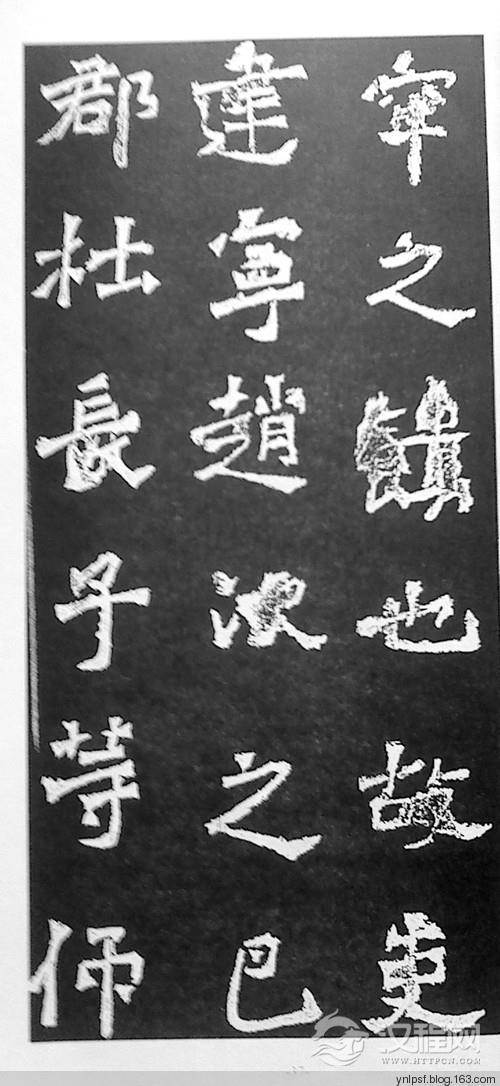 宰之也故吏
建寧趙次之巴
郡杜長子等仰
汉程网
WWW.HTTPCN.COM
ynlpsf.blog.163.com